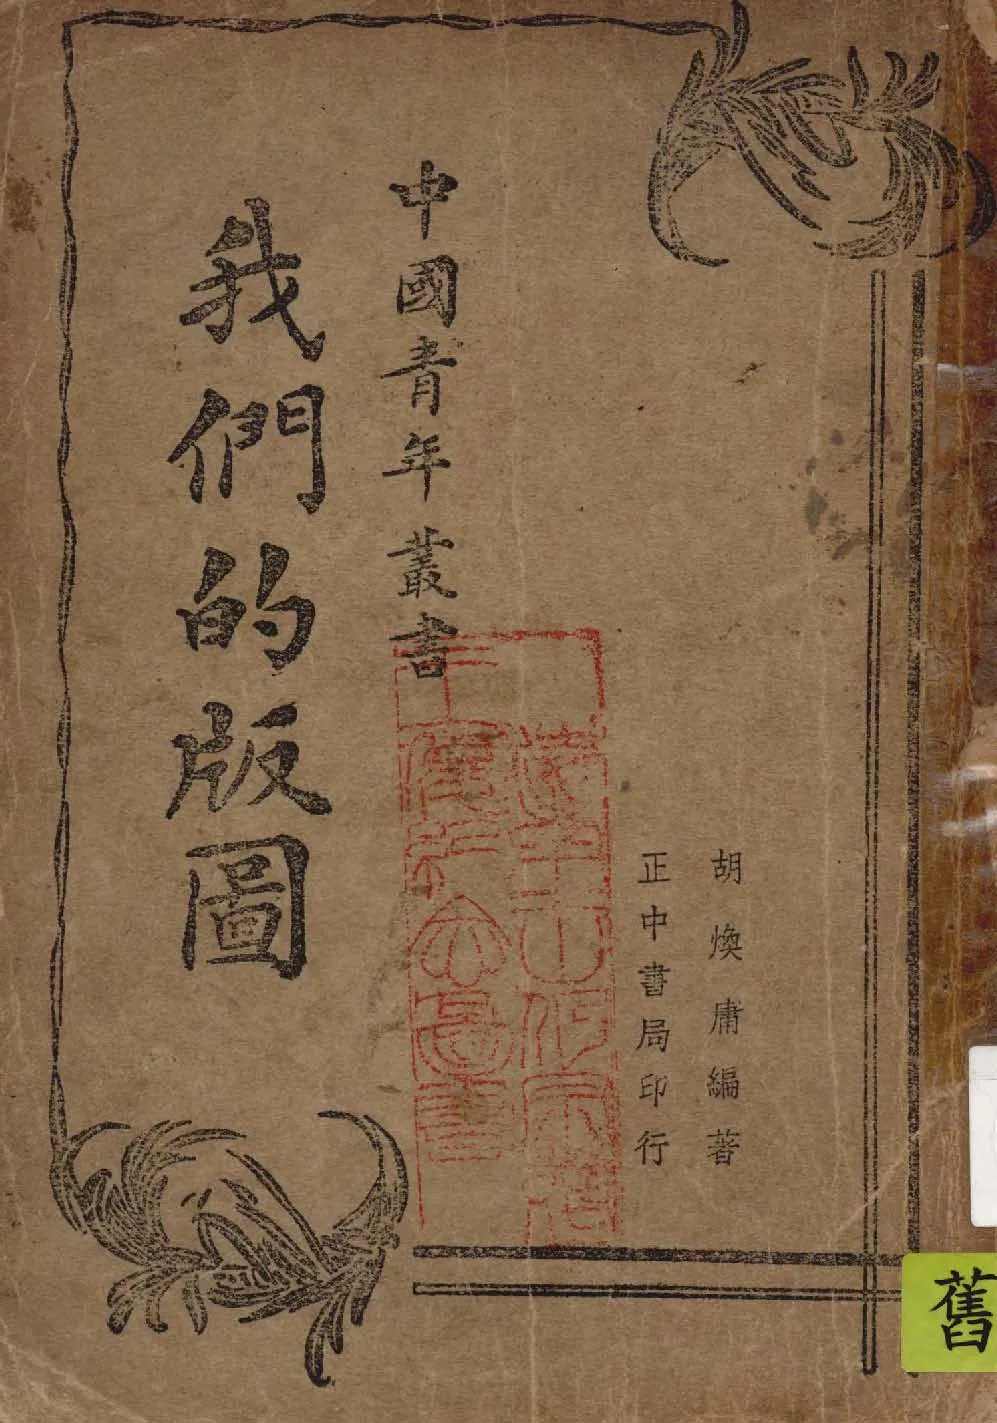 胡煥庸編著
正中書局印行
中國青年叢書
我們的版圖
舊